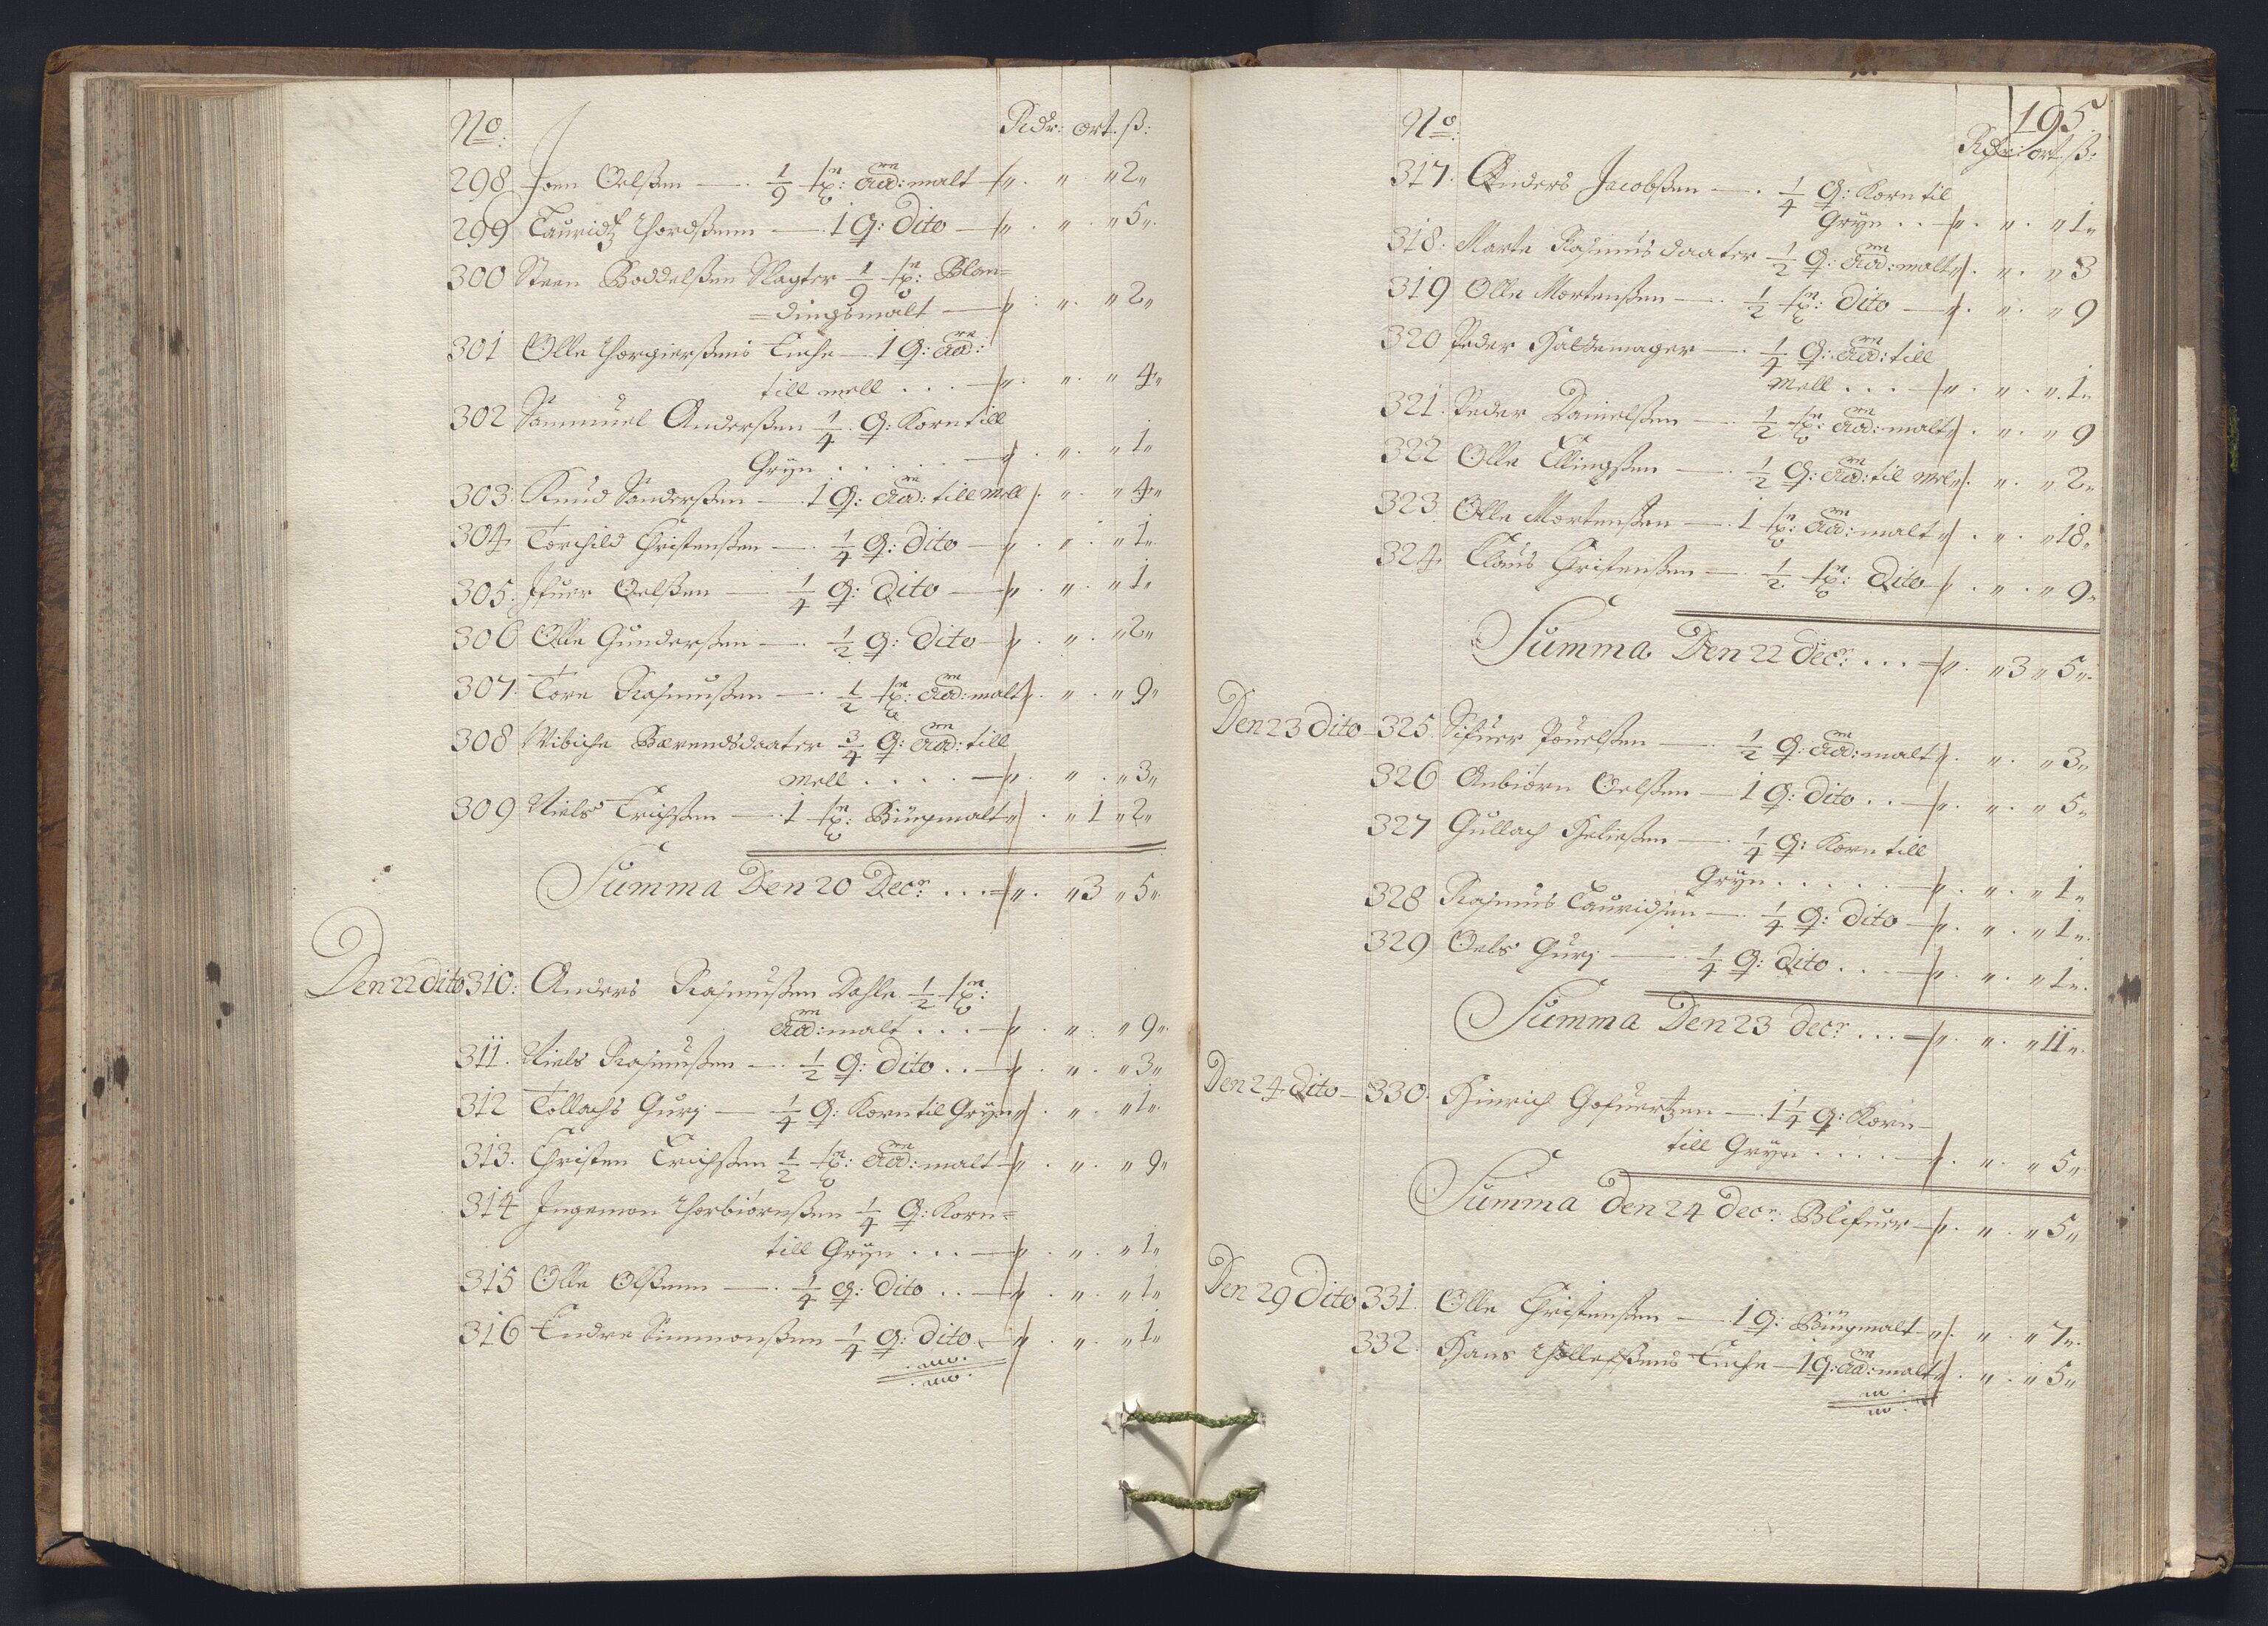 No: Rdr: ort. ß:
298 Joen Oelßen — 1/9 tp: Aad: malt — „ . „ . „ 2 „
299 Lauridtz Thordßenn — 1 Q: dito — „ . „ . „ 5 „
300 Steen Boddelßen Slagter 1/9 tp: Blan=
=dingsmalt — „ . „ . „ 2 „
301 Olle Thorgierßens Enche — 1 Q: Aad:
till mell . . . — „ . „ . „ 4 „
302 Sammuel Anderßen 1/4 Q: Korn till
Gryn . . . . . — „ . „ . „ 1 „
303: Knud Sanderßen — 1 Q: Aad: till mell „ . „ . „ 4 „
304. Torchild Christenßen — 1/4 Q: dito — „ . „ . „ 1 „
305. Ifuer Oelßen — 1/4 Q: dito — „ . „ . „ 1 „
306 Olle Gunderßen — 1/2 Q: dito — „ . „ . „ 2 „
307. Tore Rasmußen — 1/2 tp: Aad: malt „ . „ . „ 9 „
308 Wibiche Bærendsdaater 3/4 Q: Aad: till
mell . . . . — „ . „ . „ 3 „
309 Niels Erichßen — 1 tp: Bÿgmalt „ . „ 1 „ 2 „
Summa Den 20 Decr. . . . — „ . „ 3 „ 5 „
Den 22 dito 310: Anders Rasmußen Dahle 1/2 tp:
Aad: malt . . . — „ . „ . „ 9 „
311. Niels Rasmußen — 1/2 Q: dito . . — „ . „ . „ 3 „
312 Tollachs Gurj — 1/4 Q: Korn til Gryn „ . „ . „ 1 „
313. Christen Erichßen 1/2 tp: Aad: malt — „ . „ . „ 9 „
314 Ingemon Thorbiörnßen 1/4 Q: Korn=
till Gryn . . . — „ . „ . „ 1 „
315 Olle Olßenn — 1/4 Q: dito . . — „ . „ . „ 1 „
316 Endre Simmonßen 1/4 Q: dito. — „ . „ . „ 1 „
195.
No: Rdr: ort. ß:
317. Anders Jacobßen — 1/4 Q: Korn til
Gryn . . — „ . „ . „ 1 „
318: Marte Rasmusdaater 1/2 Q: Aad: malt „ . „ . „ 3
319 Olle Mortenßen — 1/2 tp: dito — „ . „ . „ 9
320 Peder Hattemager — 1/4 Q: Aad: till
mell . . . — „ . „ . „ 1 „
321. Peder Danielßen — 1/2 tp: Aad: malt „ . „ . „ 9
322 Olle Ellingßen — 1/2 Q: Aad: til mel „ . „ . „ 2 „
323. Olle Mortenßen — 1 tp: Aad: malt „ . „ . „ 18 „
324. Claus Christenßen — 1/2 tp: dito „ . „ . „ 9 „
Summa Den 22 Decr: . . . — „ . „ 3 „ 5 „
Den 23 dito — 325. Sifuer Pouelßen — 1/2 Q: Aad: malt „ . „ . „ 3 „
326 Anbiörn Oelßen — 1 Q: dito . . — „ . „ . „ 5 „
327 Gullach Heließen — 1/4 Q: Korn till
Gryn . . . . . — „ . „ . „ 1 „
328 Rasmus Lauridsen — 1/4 Q: dito — „ . „ . „ 1 „
329 Oels Gurj — 1/4 Q: dito . . . — „ . „ . „ 1 „
Summa Den 23 decr . . . — „ . „ . „ 11 „
Den 24 dito — 330. Hinrich Gofuertzen — 1 1/4 Q: Korn —
till Gryn . . . . — „ . „ . „ 5 „
Summa Den 24 Decr: Blifuer — „ . „ . „ 5 „
Den 29 dito 331. Olle Christenßen — 1 Q: Bÿgmalt „ . „ . „ 7 „
332. Hans Enche — 1 Q: Aad: malt „ . „ . „ 5 „